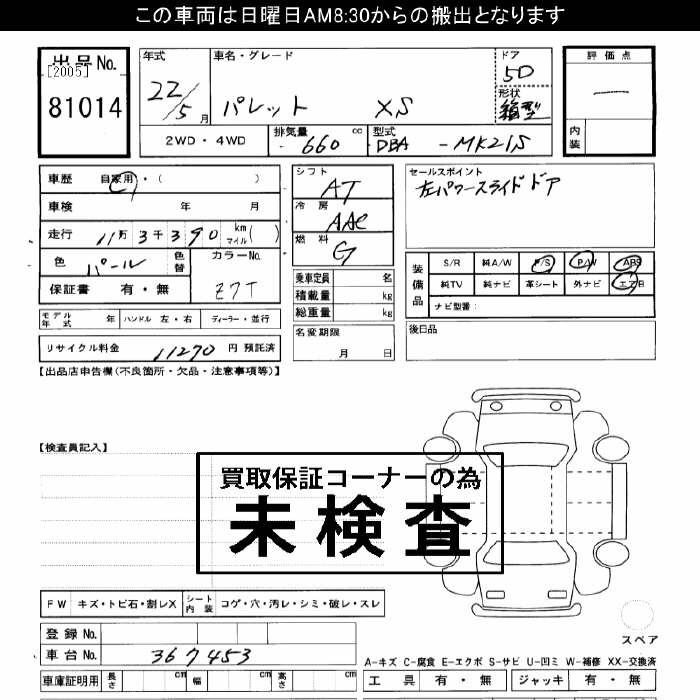 この車両は日曜日AM8:30からの搬出となります
出品No.
[2005]
81014
年式
22/5月
車名・グレード
パレット XS
ドア
5D
形状
箱型
評価点
内装
2WD・4WD
排気量
660 cc
型式
DBA-MK21S
車歴 自家用・( )
車検 年 月
走行 11万3千390 km マイル( )
色 パール 色替
カラーNo.
Z7T
保証書 有・無
モデル年式 年 ハンドル 左・右 ディーラー・並行
リサイクル料金 11270 円 預託済
シフト
AT
冷房
AAC
燃料
G
乗車定員 名
積載量 kg
総重量 kg
名変期限
月 日
セールスポイント
左パワースライドドア
装備品
S/R 純A/W P/S P/W ABS
純TV 純ナビ 革シート 外ナビ エアB
ナビ型番:
後日品
【出品店申告欄(不良箇所・欠品・注意事項等)】
【検査員記入】
買取保証コーナーの為
未検査
FW キズ・トビ石・割レX シート内装 コゲ・穴・汚レ・シミ・破レ・スレ
登録No.
車台No. 367453
車庫証明用 長さ cm 幅 cm 高さ cm
スペア
A-キズ C-腐食 E-エクボ S-サビ U-凹ミ W-補修 XX-交換済
工具 有・無 ジャッキ 有・無